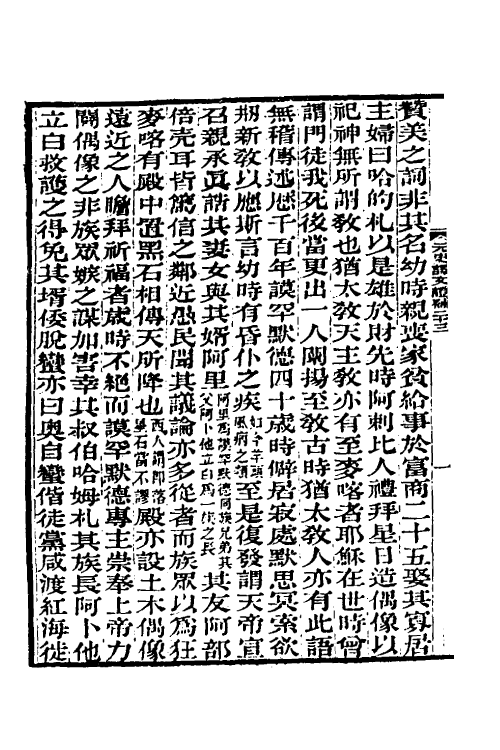 贊美之詞非其名幼時親喪家貧給事於富商二十五娶其寡居
主婦曰哈的札以是雄於財先時阿剌比人禮拜星日造偶像以
祀神無所謂敎也猶太敎天主敎亦有至麥喀者耶穌在世時曾
謂門徒我死後當更出一人闡揚至敎古時猶太敎人亦有此語
無稽傳述歷千百年謨罕默德四十歲時僻居寂處默思冥索欲
刱新敎以應斯言幼時有昏仆之疾如今羊頭風病之類至是復發謂天帝宣
召親承眞誥其妻女與其婿阿里阿里爲謨罕默德阿族兄弟其父阿卜他立白爲一族之長其友阿部
倍壳耳皆驚信之鄰近愚民聞其議論亦多從者而族眾以爲狂
麥喀有殿中置黑石相傳天所降也西人謂卽落星石當不謬殿亦設土木偶像
遠近之人瞻拜祈福者歲時不絕而謨罕默德專主崇奉上帝力
闢偶像之非族眾嫉之謀加害幸其叔伯哈姆札其族長阿卜他
立白救護之得免其壻倭脫蠻亦曰奧自蠻偕徒黨咸渡紅海徙
元史譯文證補二十三
一